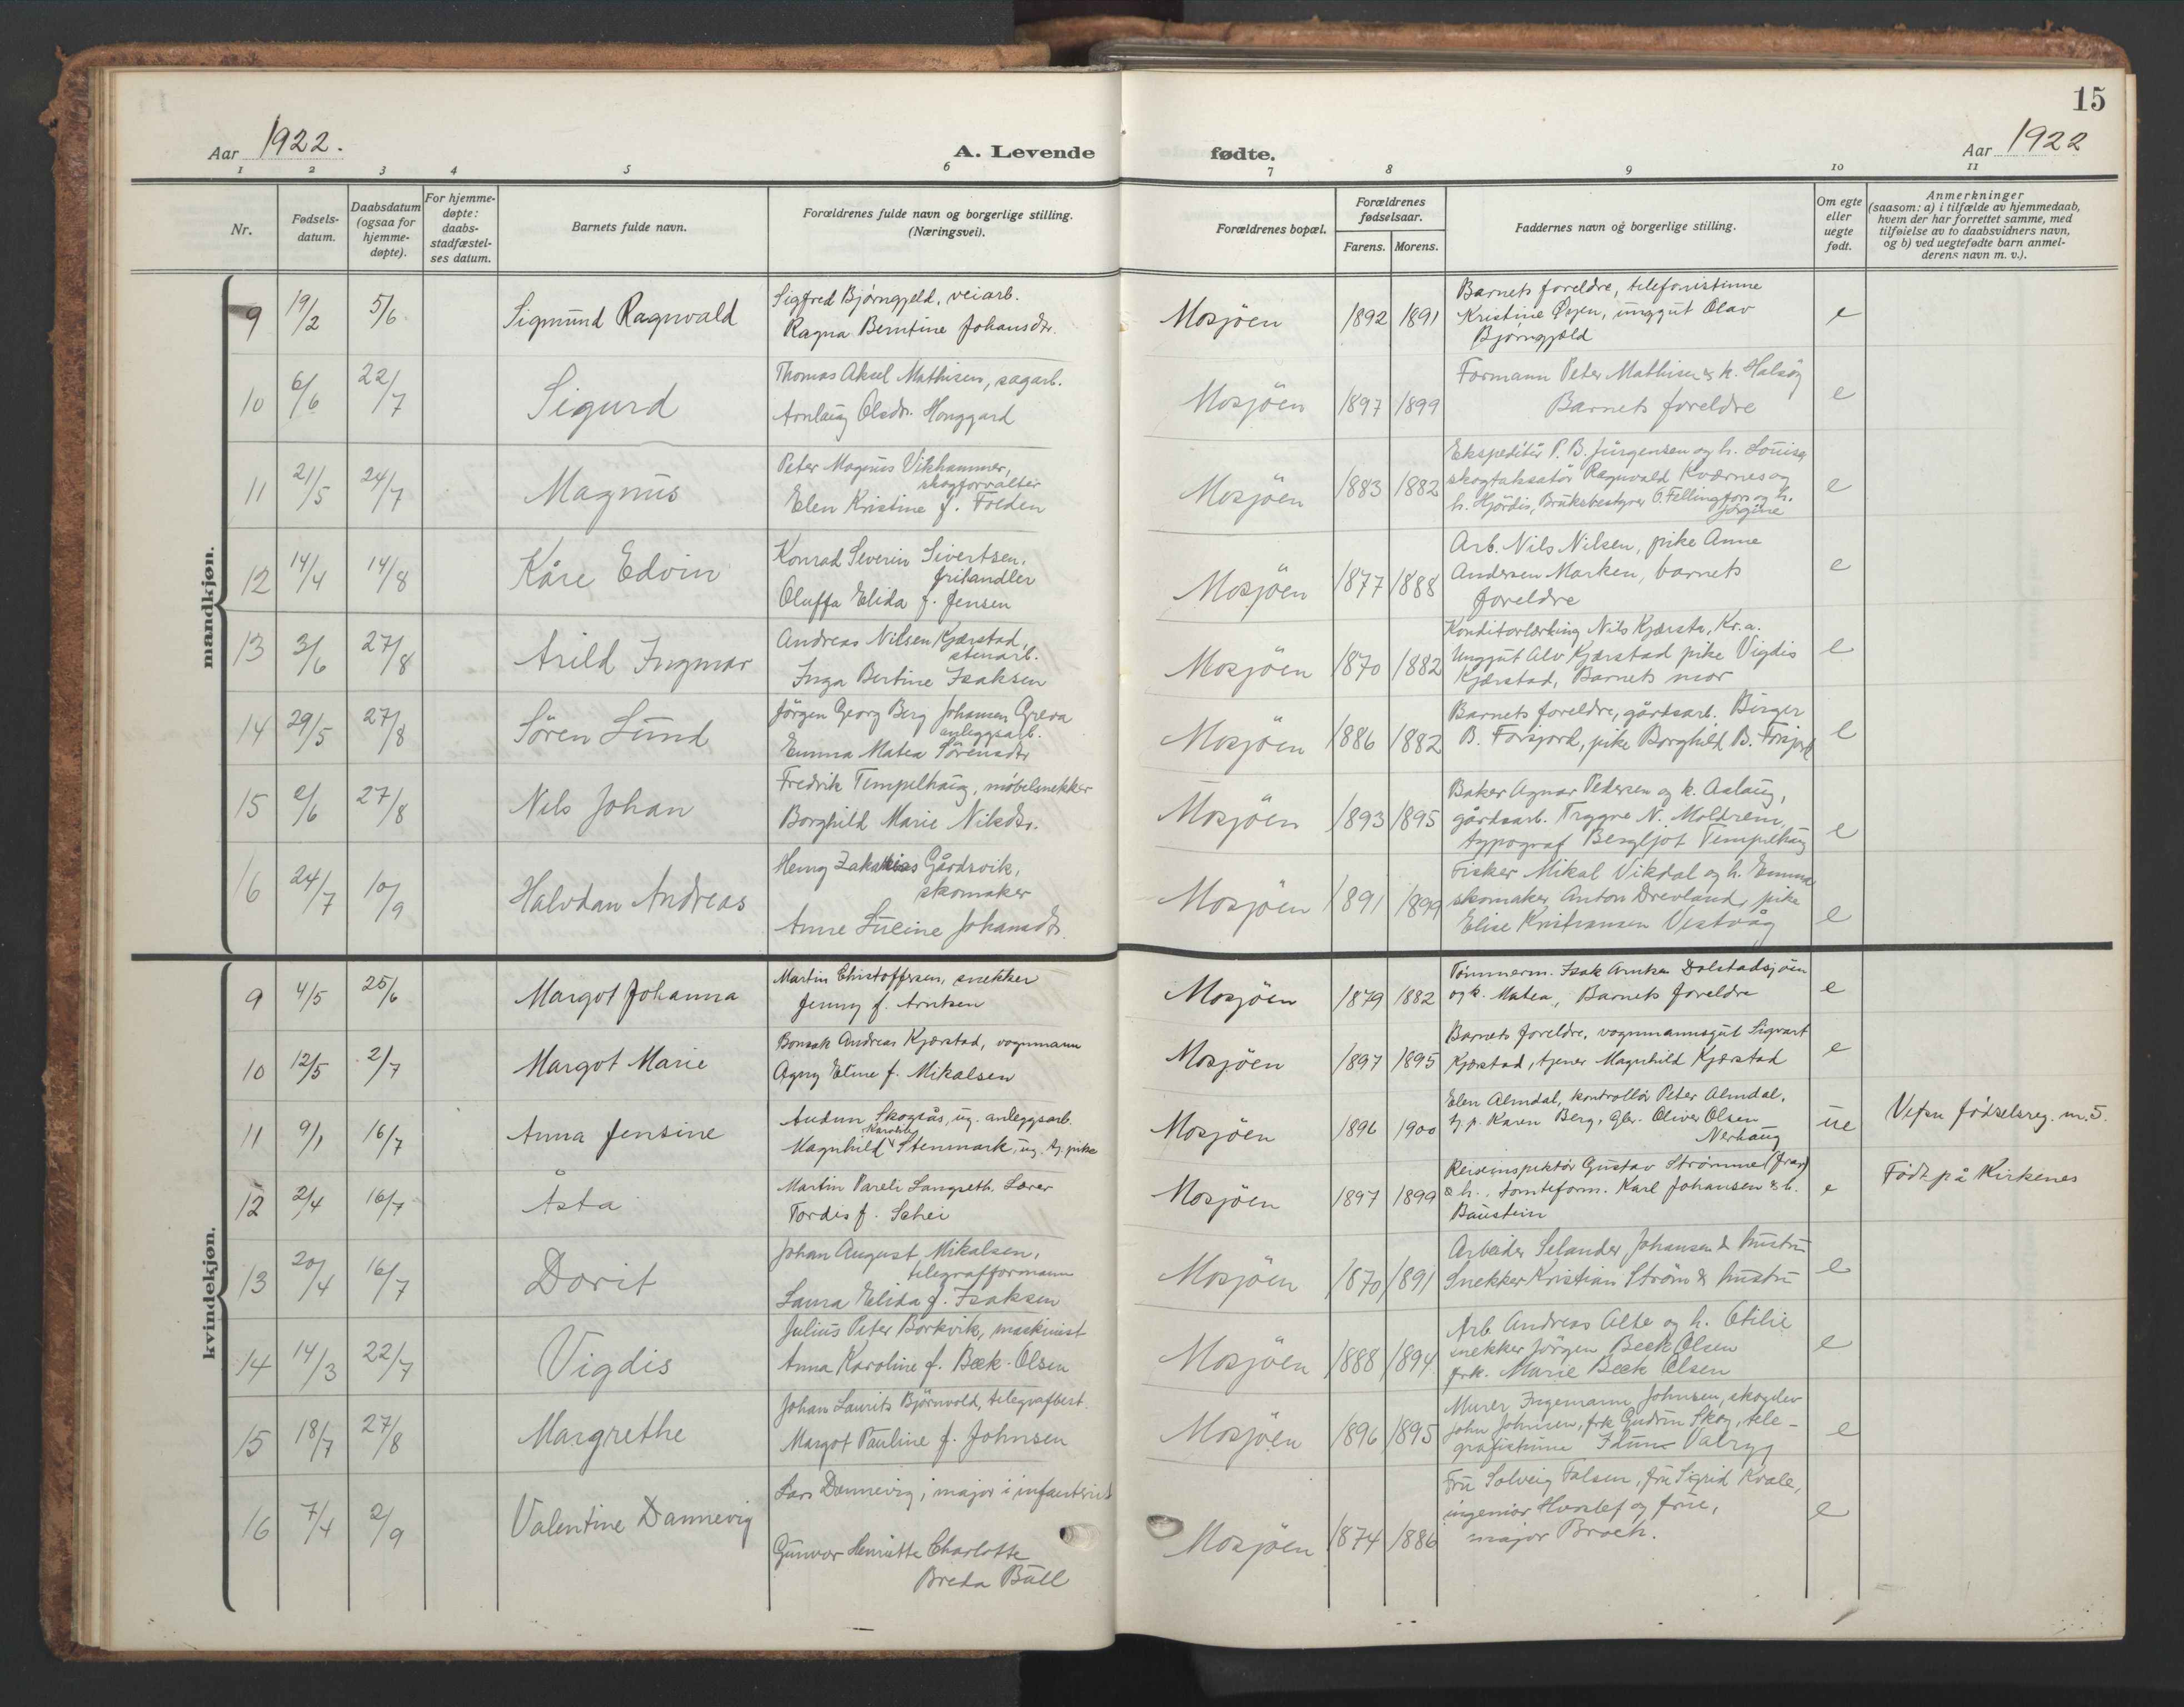 15
Aar 1922.
A. Levende fødte.
Aar 1922
1 2 3 4 5 6 7 8 9 10 11
Nr.
Fødsels-datum.
Daabsdatum (ogsaa for hjemme-døpte).
For hjemme-døpte: daabs-stadfæstel-ses datum.
Barnets fulde navn.
Forældrenes fulde navn og borgerlige stilling. (Næringsvei).
Forældrenes bopæl.
Forældrenes fødselsaar.
Farens. Morens.
Faddernes navn og borgerlige stilling.
Om egte eller uegte født.
Anmerkninger
(saasom: a) i tilfælde av hjemmedaab,
hvem der har forrettet samme, med
tilføielse av to daabsvidners navn,
og b) ved uegtefødte barn anmel-
derens navn m. v.).
mandkjøn.
9 19/2 5/6 Sigmund Ragnvald
Sigfred Bjørngjeld, veiarb.
Ragna Berntine Johansdtr.
Mosjøen 1892 1891
Barnets foreldre, telefonistinne
Kristine Øyen, unggut Olav
Bjørngjeld
e
10 6/6 22/7 Sigurd
Thomas Aksel Mathisen, sagarb.
Arnlaug Olsdr. Honggard
Mosjöen 1897 1899
Formann Peter Mathisen & h. Halsöy
Barnets foreldre
e
11 21/5 24/7 Magnus
Peter Magnus Vikhammer,
skogforvalter
Elen Kristine f. Folden
Mosjöen 1883 1882
Ekspeditör P. B. Jürgensen og h. Louisa
skogtaksatör Ragnvald Kværnes og
h. Hjördis, Bruksbestyrer O. Fellingfors og h.
Jörgine
e
12 14/4 14/8 Kåre Edvin
Konrad Severin Sivertsen,
frihandler
Oluffa Elida f. Jensen
Mosjöen 1877 1888
Arb. Nils Nilsen, pike Anne
Andersen Marken, barnets
foreldre
e
13 3/6 27/8 Arild Ingmar
Andreas Nilsen Kjærstad,
stenarb.
Inga Bertine Isaksen
Mosjöen 1870 1882
Konditorlærling Nils Kjærsta, Kr.a.
Unggut Alv Kjærstad pike Vigdis
Kjærstad, Barnets mor
e
14 29/5 27/8 Sören Lund
Jörgen Georg Berg Johansen Greva
anleggsarb.
Emma Matea Sörensdtr
Mosjöen 1886 1882
Barnets foreldre, gårdsarb. Birger
B. Forsjord, pike Borghild B. Forsjord
e
15 2/6 27/8 Nils Johan
Fredrik Tempelhaug, möbelsnekker
Borghild Marie Nilsdtr.
Mosjöen 1893 1895
Baker Agnar Pedersen og h. Aslaug,
gårdsarb. Trygve N. Moldrem,
typograf Bergljot Tempelhaug
e
16 24/7 10/9 Halvdan Andreas
Henry Zakarias Gårdsvik,
skomaker
Anne Lucine Johansdtr.
Mosjöen 1891 1899
Fisker Mikal Vikdal og h. Emma
skomaker Anton Drevland, pike
Elise Kristiansen Vestvåg
e
kvindekjøn.
9 4/5 25/6 Margot Johanna
Martin Christoffersen, snekker
Jenny f. Arntsen
Mosjøen 1879 1882
Tømmerm. Isak Arntsen Dolstadsjöen
og h. Matea, Barnets foreldre
e
10 12/5 2/7 Margot Marie
Bonsak Andreas Kjærstad, vognmann
Agny Eline f. Mikalsen
Mosjøen 1897 1895
Barnets foreldre, vognmannsgut Sigvart
Kjærstad, tjener Magnhild Kjærstad
e
11 9/1 16/7 Anna Jensine
Audun Skogsås, ug. anleggsarb.
Magnhild Karoline Stenmark, ug. tj. pike
Mosjøen 1896 1900
Elen Almdal, kontrollör Peter Almdal,
tj. p. Karen Berg, gbr. Oliver Olsen
Nerhaug
ue
Vefsn födselsreg. nr. 5.
12 2/4 16/7 Åsta
Martin Pareli Langseth. Lærer
Tordis f. Schei
Mosjøen 1897 1899
Reiseinspektör Gustav Strömme (fra)
& h., tomteform. Karl Johansen & h.
Baustein
e
Födt på Kirkenes
13 20/4 16/7 Dorit
Johan August Mikalsen,
telegrafformann
Laura Elida f. Isaksen
Mosjöen 1870 1891
Arbeider Selander Johansen & hustru
Snekker Kristian Ström & hustru
e
14 14/3 22/7 Vigdis
Julius Peter Borkvik, maskinist
Anna Karoline f. Beck-Olsen
Mosjöen 1888 1894
Arb. Andreas Alte og h. Otilie
snekker Jörgen Beck Olsen
frk. Marie Beck Olsen
e
15 18/7 27/8 Margrethe
Johan Laurits Björnvold, telegrafbest.
Margot Pauline f. Johnsen
Mosjöen 1896 1895
Murer Ingemann Johnsen, skogelev
John Johnsen, frk Gudrun Skog, tele-
grafistinne Idunn Valryg
e
16 7/4 2/9 Valentine Dannevig
Lars Dannevig, major i infanteriet
Gunvor Henriette Charlotte
Breda Bull
Mosjöen 1874 1886
Fru Solveig Falsen, fru Sigrid Kvale,
ingeniör Horslef og frue,
major Broch.
e